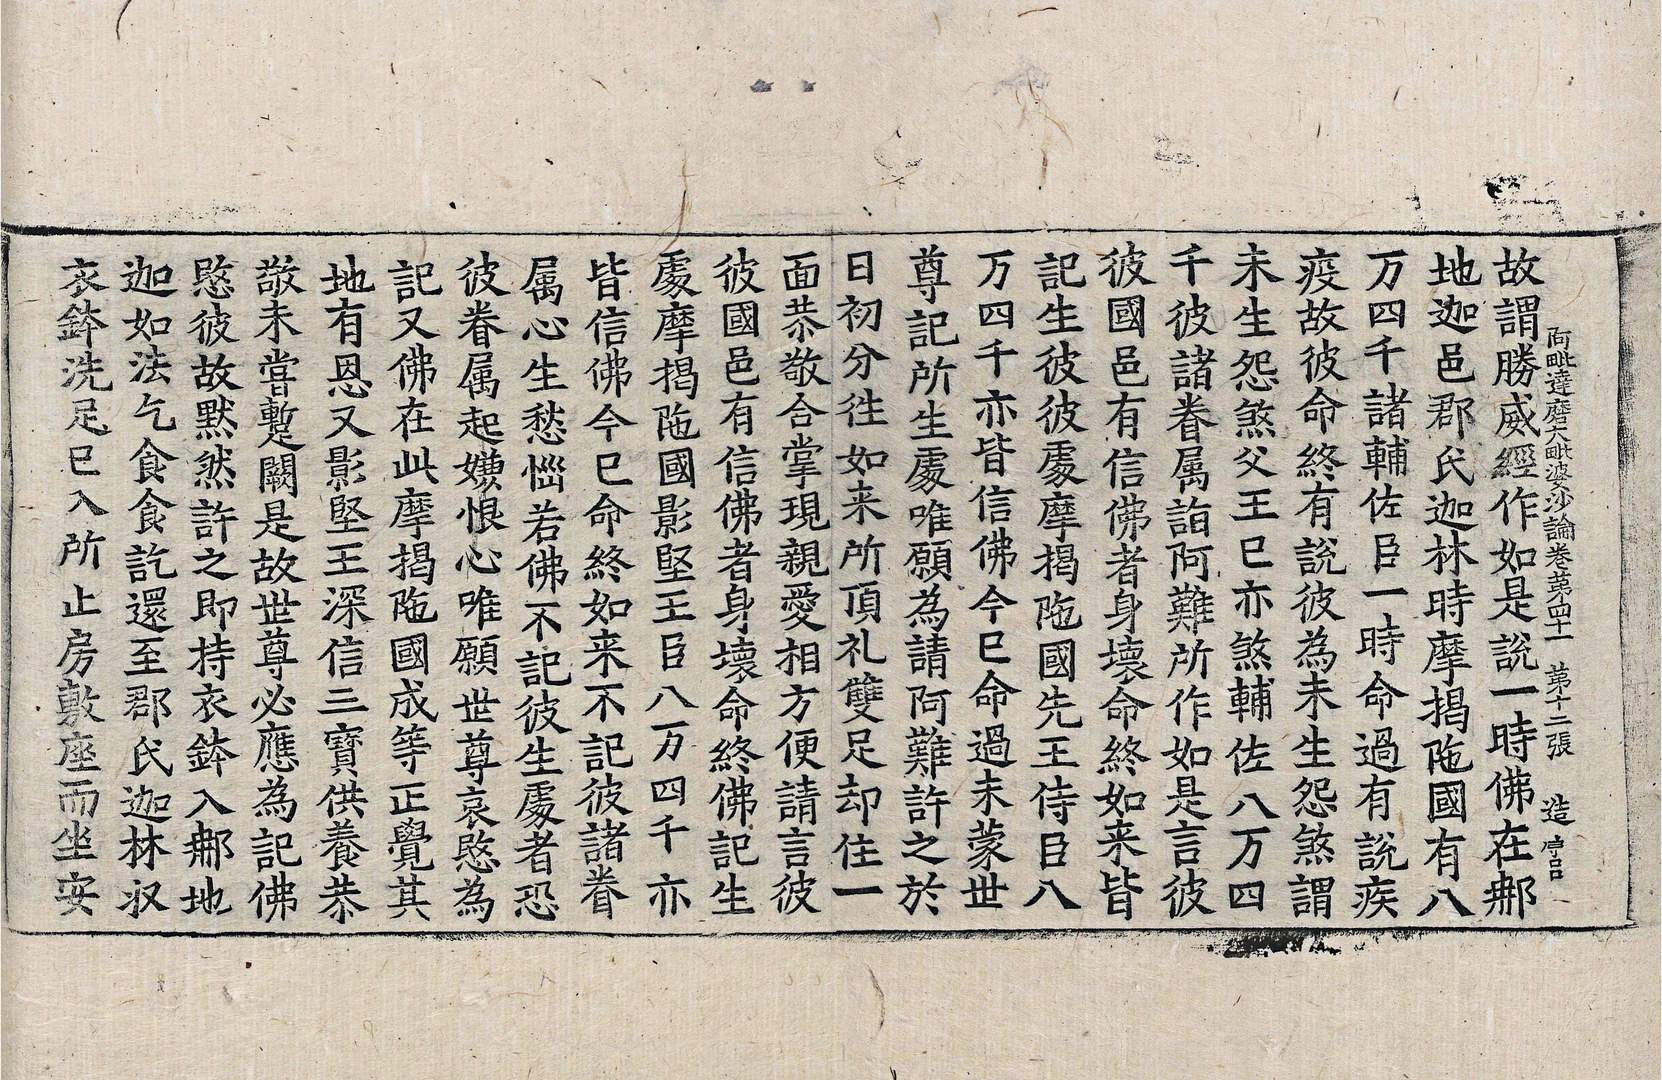 阿毗達磨大毗婆沙論卷苐四十一 苐十二張 造
故謂勝威經作如是說一時佛在𨚗
地迦邑郡氏迦林時摩揭陁國有八
万四千諸輔佐臣一時命過有說疾
疫故彼命終有說彼為未生怨煞謂
未生怨煞父王已亦煞輔佐八万四
千彼諸眷属詣阿難所作如是言彼
彼國邑有信佛者身壞命終如来皆
記生彼彼處摩揭陁國先王侍臣八
万四千亦皆信佛今已命過未蒙世
尊記所生處唯願為請阿難許之於
日初分往如来所頂礼雙足却住一
面恭敬合掌現親愛相方便請言彼
彼國邑有信佛者身壞命終佛記生
處摩揭陁國影堅王臣八万四千亦
皆信佛今已命終如来不記彼諸眷
属心生愁惱若佛不記彼生處者恐
彼眷属起嫌恨心唯願世尊哀愍為
記又佛在此摩揭陁國成等正覺其
地有恩又影堅王深信三寶供養恭
敬未甞蹔闕是故世尊必應為記佛
愍彼故默然許之即持衣鉢入𨚗地
迦如法乞食食訖還至郡氏迦林収
衣鉢洗足已入所止房敷座而坐安